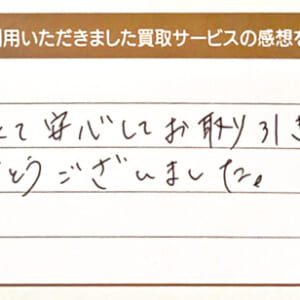 用いただきました買取サービスの感想を
て安心してお取り引き
とうございました。